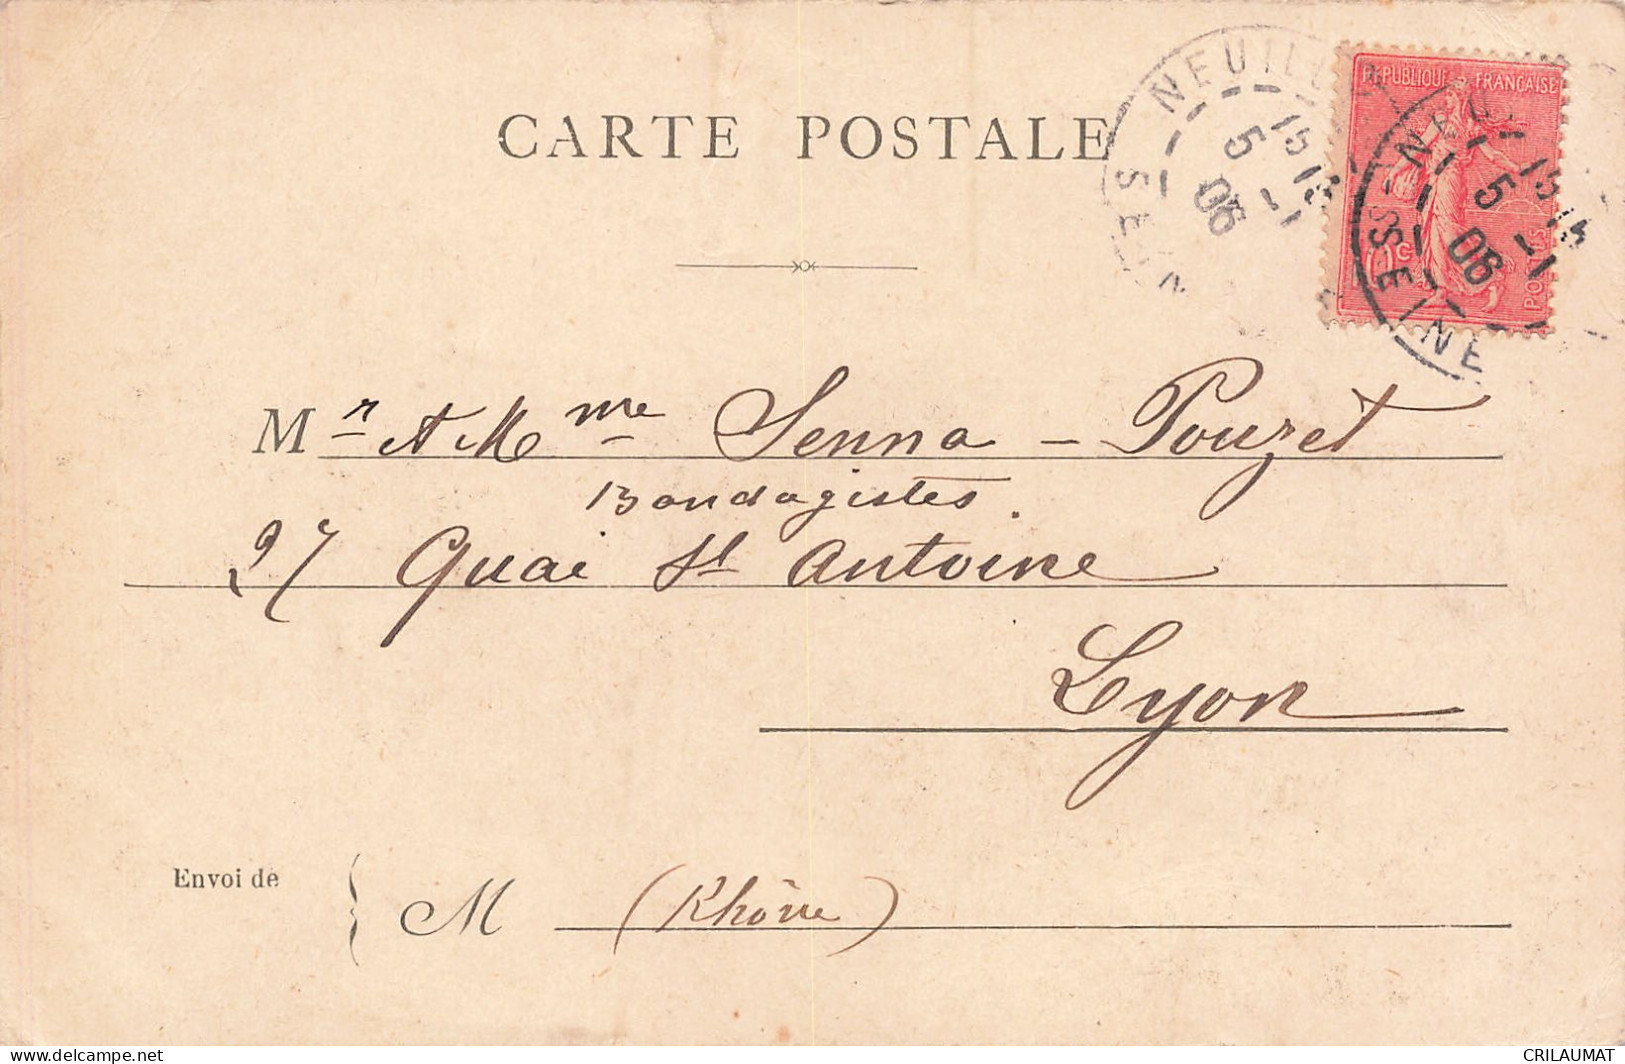 CARTE POSTALE
NEUILL
15 15
5 -1
06
SEIN
REPUBLIQUE FRANÇAISE
POSTES
15 15
5 -1
06
SEINE
Mr et Mme Senna - Pouzet
Bandagistes.
27 Quai St Antoine
Lyon
Envoi de M (Rhône)
https://www.delcampe.net
CRILAUMAT